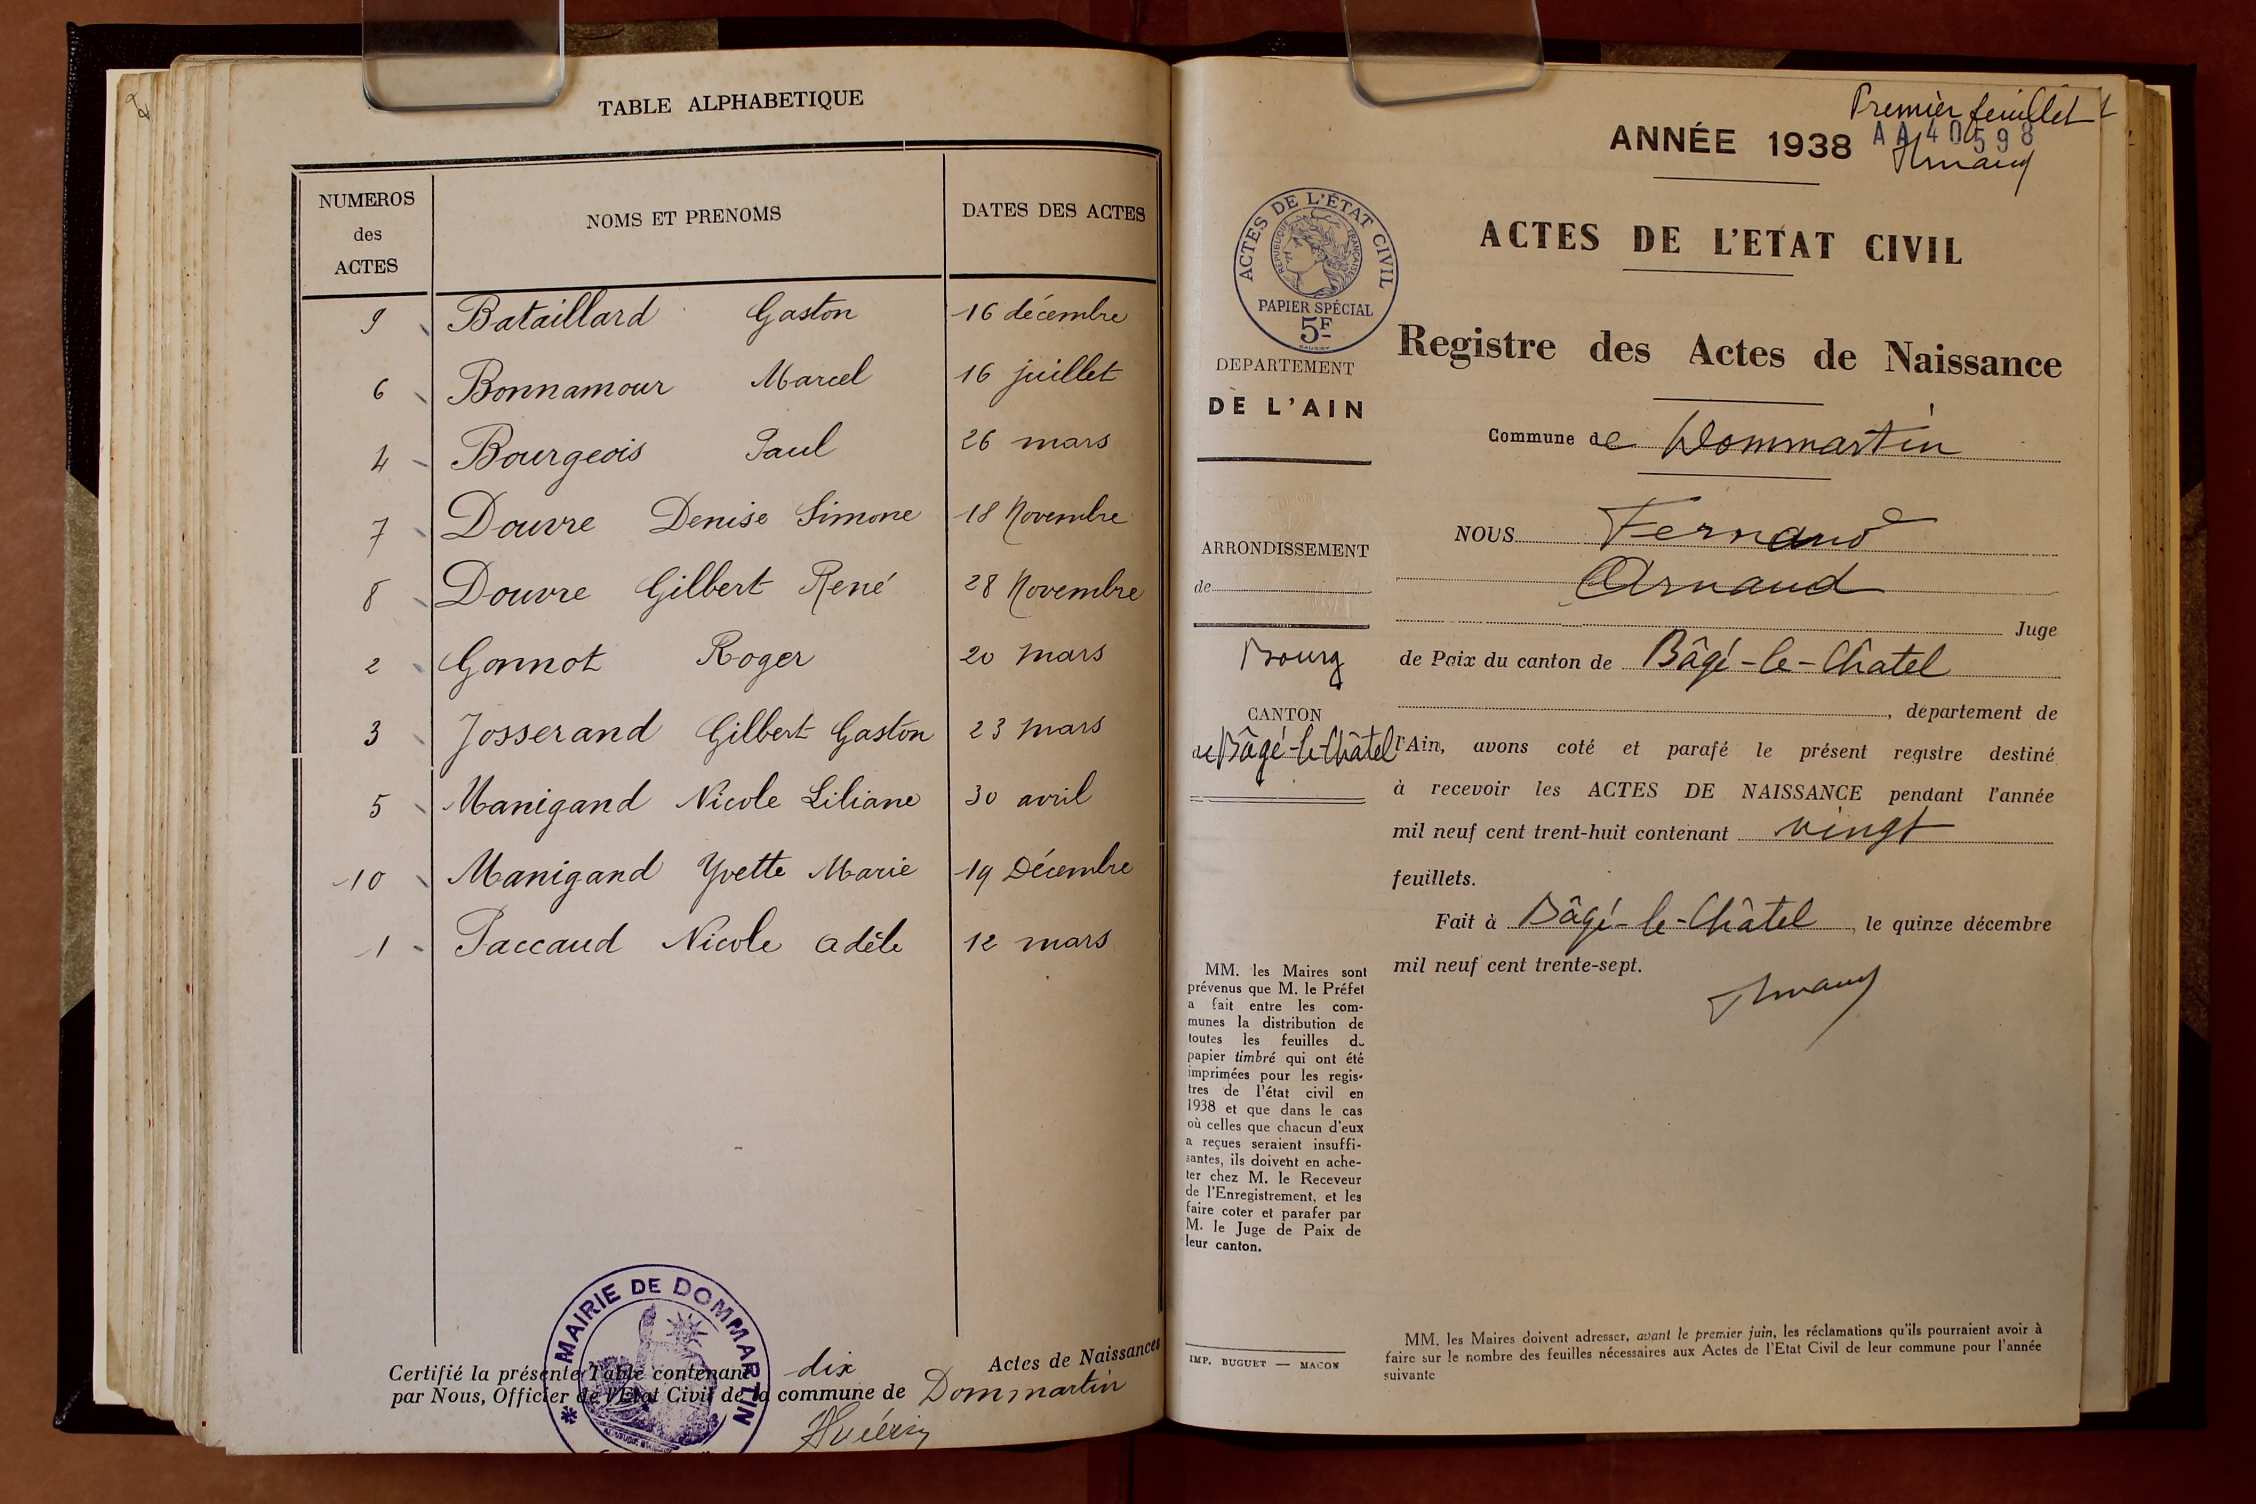 TABLE ALPHABETIQUE
NUMEROS des ACTES
NOMS ET PRENOMS
DATES DES ACTES
9 Bataillard Gaston 16 décembre
6 Bonnamour Marcel 16 juillet
4 Bourgeois Paul 26 mars
7 Douvre Denise Simone 18 Novembre
8 Douvre Gilbert René 28 Novembre
2 Gonnot Roger 20 mars
3 Josserand Gilbert Gaston 23 mars
5 Manigand Nicole Liliane 30 avril
10 Manigand Yvette Marie 19 Décembre
1 Paccaud Nicole Adèle 12 mars
MAIRIE DE DOMMARTIN
Certifié la présente Table contenant dix Actes de Naissances
par Nous, Officier de l'Etat Civil de la commune de Dommartin
Premier feuillet
ANNÉE 1938
AA 40598
Arnaud
ACTES DE L'ÉTAT CIVIL
REPUBLIQUE FRANÇAISE
PAPIER SPÉCIAL
5F
DEPARTEMENT
DE L'AIN
ARRONDISSEMENT
de
Bourg
CANTON
de Bâgé-le-Châtel
MM. les Maires sont
prévenus que M. le Préfet
a fait entre les com-
munes la distribution de
toutes les feuilles de
papier timbré qui ont été
imprimées pour les regis-
tres de l'état civil en
1938 et que dans le cas
où celles que chacun d'eux
a reçues seraient insuffi-
santes, ils doivent en ache-
ter chez M. le Receveur
de l'Enregistrement, et les
faire coter et parafer par
M. le Juge de Paix de
leur canton.
IMP. BUGUET — MACON
ACTES DE L'ETAT CIVIL
Registre des Actes de Naissance
Commune de Dommartin
NOUS Fernand
Arnaud
Juge
de Paix du canton de Bâgé-le-Chatel
, departement de
l'Ain, avons coté et parafé le présent registre destiné
à recevoir les ACTES DE NAISSANCE pendant l'année
mil neuf cent trent-huit contenant vingt
feuillets.
Fait à Bâgé-le-Châtel, le quinze décembre
mil neuf cent trente-sept.
Arnaud
MM. les Maires doivent adresser, avant le premier juin, les réclamations qu'ils pourraient avoir à
faire sur le nombre des feuilles nécessaires aux Actes de l'Etat Civil de leur commune pour l'année
suivante